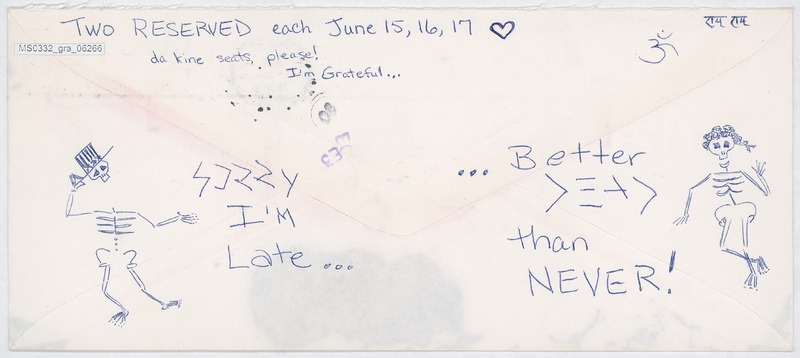 Two RESERVED each June 15, 16, 17 ♡
राम राम
MS0332_gra_06266
ॐ
da kine seats, please!
I'm Grateful...
EE3
SORRY
I'M
Late...
... Better
DEAD
than
NEVER!